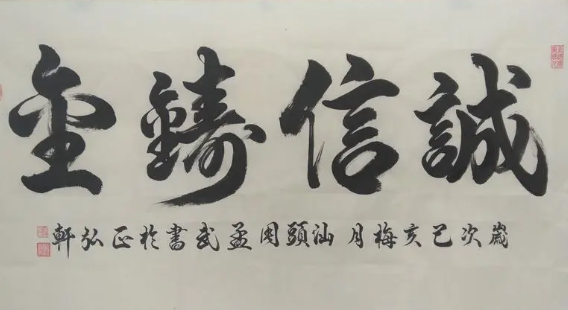 誠信鑄金
歲次己亥梅月汕頭周孟武書於正弘軒